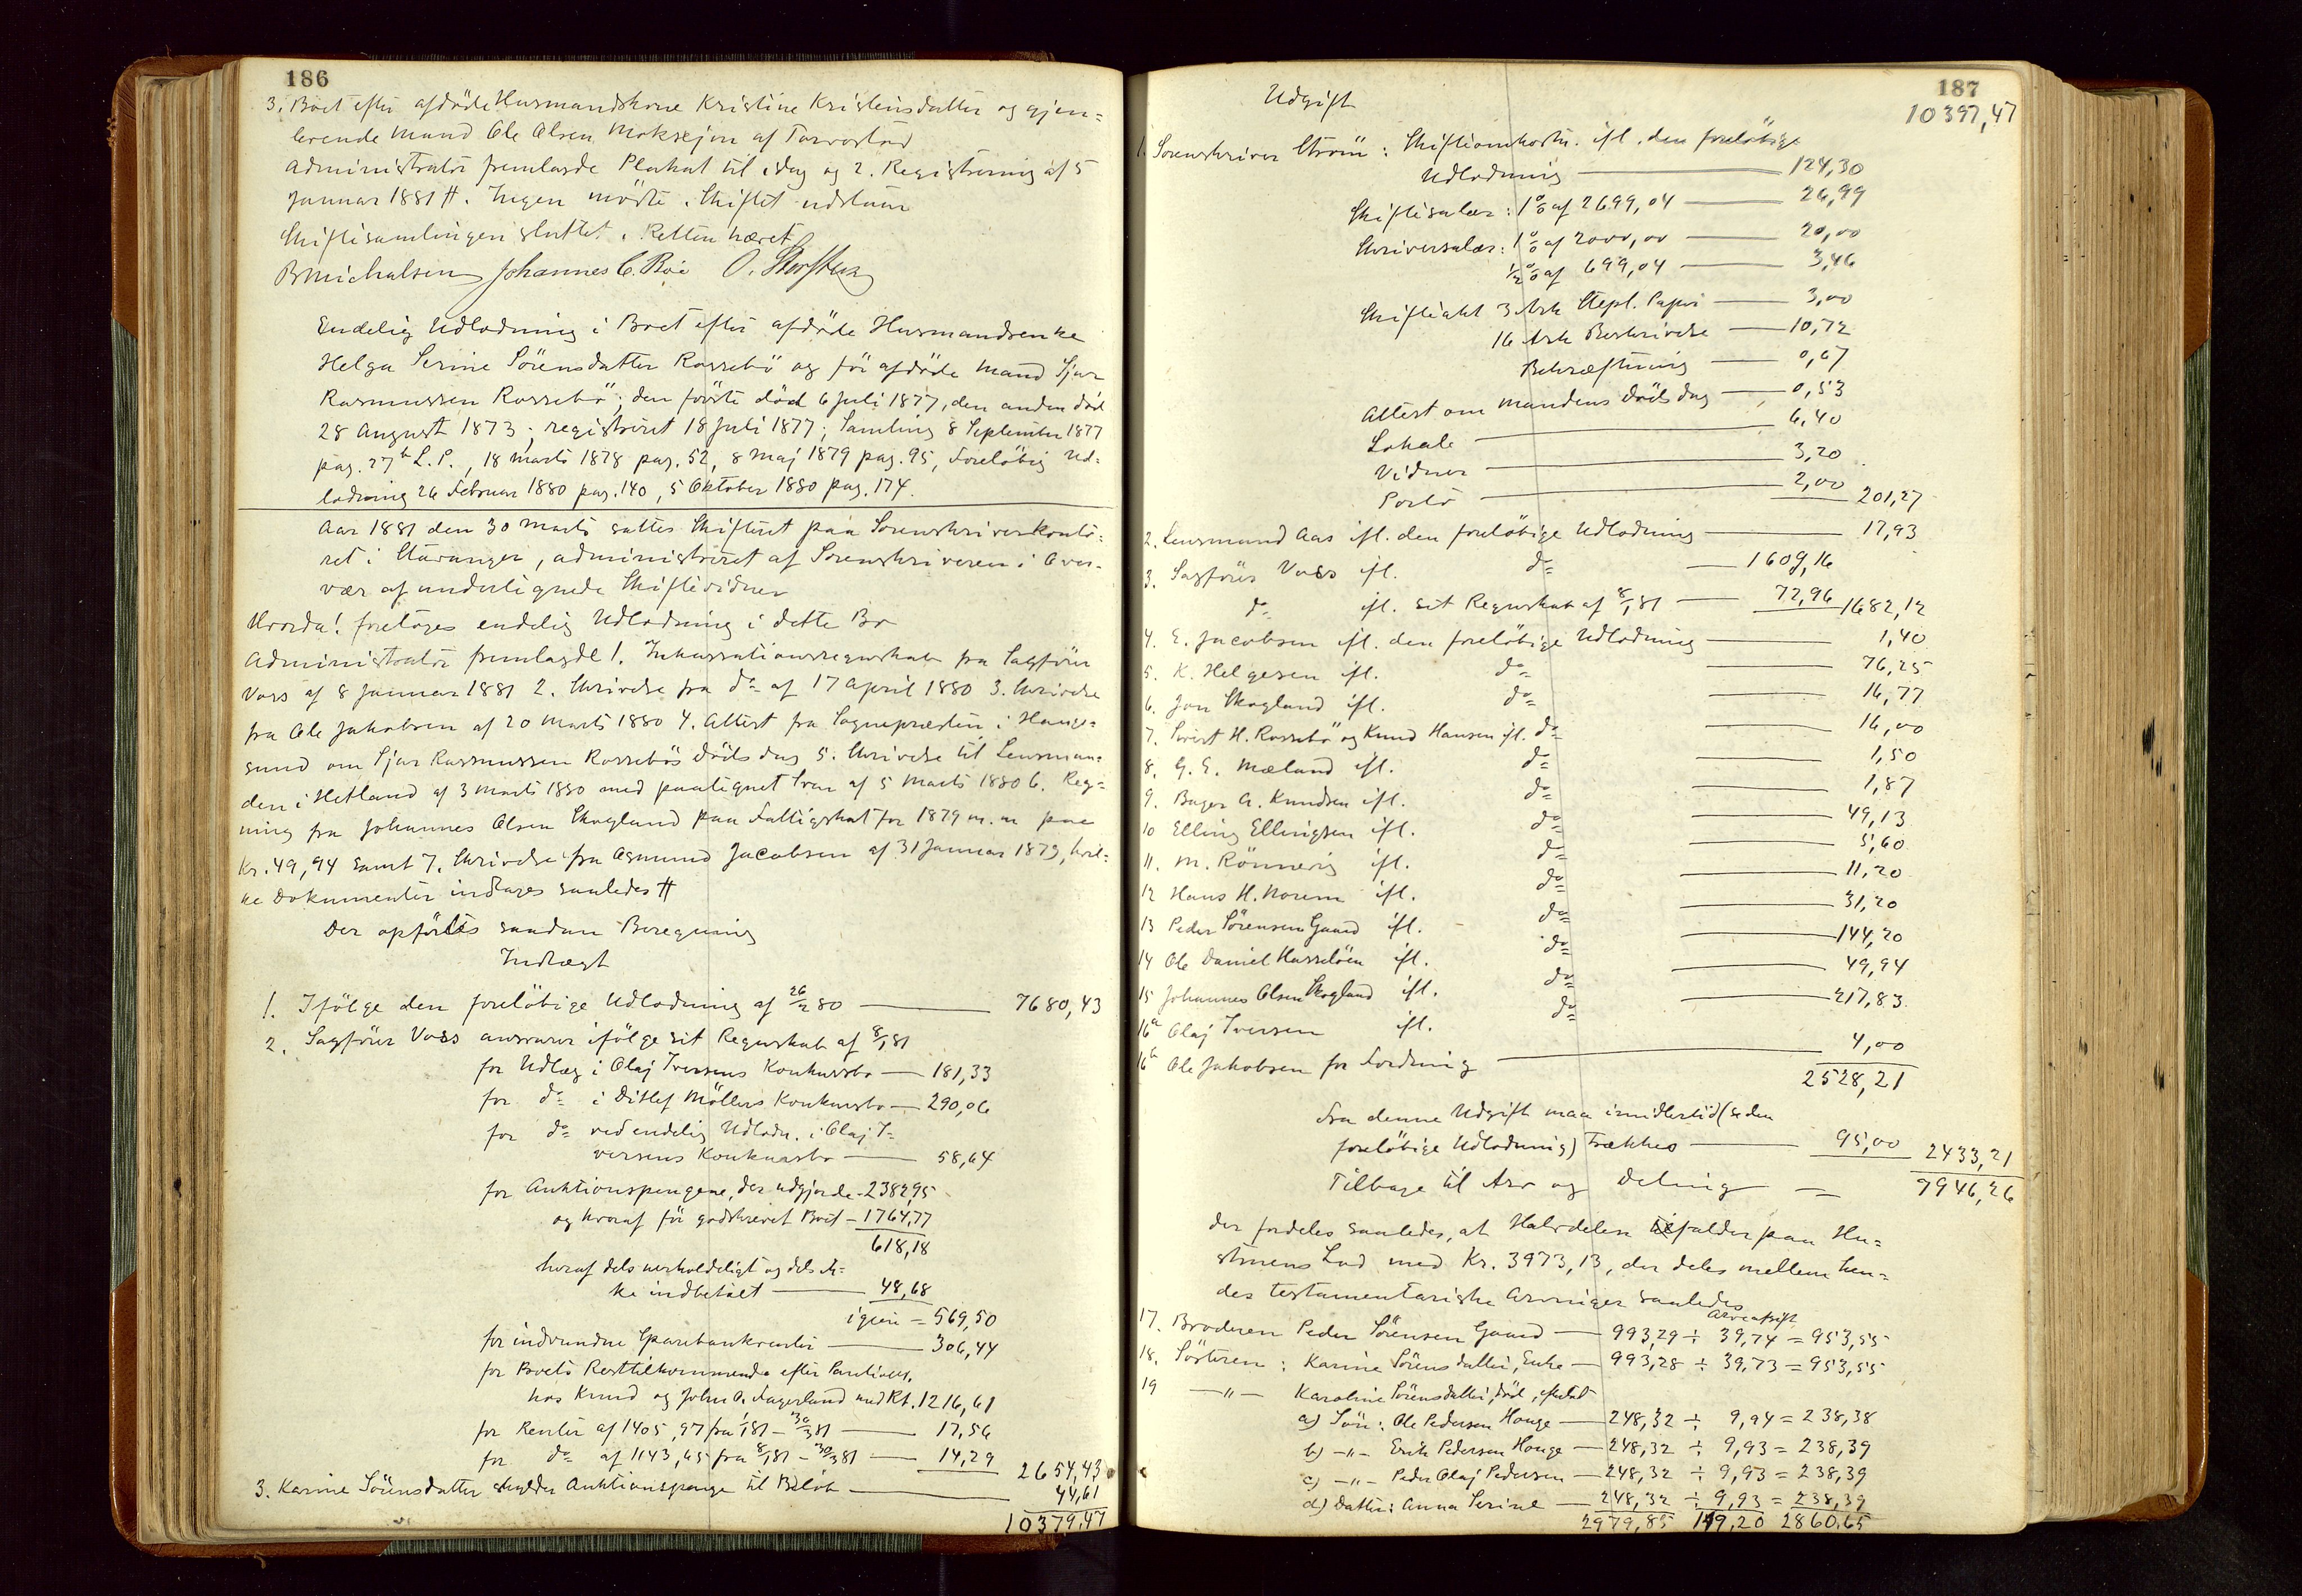 186
3. Boet efter afdöde Husmandskone Kristine Kristensdatter og gjen=
levende Mand Ole Olsen Moksejon af Torvestad
Administrator fremlagde Plakat til idag og 2. Registrering af 5
Januar 1881 #. Ingen mödte. Skiftet udstaar
Skiftesamlingen sluttet. Retten hævet
BMichalsen Johannes C. Böe O. Storsteen
Endelig Udlodning i Boet efter afdöde Husmandsenke
Helga Serine Sörensdatter Rossebö og för afdöde Mand Sjur
Rasmussen Rossebö; den förste död 6 Juli 1877, den anden död
28 August 1873; registreret 18 Juli 1877; Samling 8 September 1877
pag. 27b L.P., 18 Marts 1878 pag. 52, 8 Maj 1879 pag. 95, Forelöbig Ud=
lodning 26 Februar 1880 pag. 140, 5 Oktober 1880 pag. 174.
Aar 1881 den 30 Marts sattes Skifteret paa Sorenskriverkonto=
ret i Stavanger, administreret af Sorenskriveren i Over=
vær af undertegnede Skiftevidner
Hvorda! foretoges endelig Udlodning i dette Bo
Administrator fremlagde 1. Inkassationsregnskab fra Sagförer
Voss af 8 Januar 1881 2. Skrivelse fra do af 17 April 1880 3. Skrivelse
fra Ole Jakobsen af 20 Marts 1880 4. Attest fra Sognepresten i Hauge=
sund om Sjur Rasmussen Rossebös Dödsdag 5. Skrivelse til Lensman=
den i Hetland af 3 Marts 1880 med paategnet Svar af 5 Marts 1880 6. Reg=
ning fra Johannes Olsen Skogland paa Fattigskat for 1879 m. m paa
Kr. 49,94 samt 7. Skrivelse fra Asmund Jacobsen af 31 Januar 1879, hvil=
ke Dokumenter indtages saaledes #
Der opförtes saadan Beregning
Indtægt
1. Ifölge den forelöbige Udlodning af 26/2 80 — 7680,43
2. Sagförer Voss ansvarer ifölge sit Regnskab af 8/1 81
for Udlæg i Olaj Iversens Konkursbo — 181,33
for do i Ditlef Möllers Konkursbo — 290,06
for do ved endelig Udlodn. i Olaj I=
versens Konkursbo — 58,64
for Auktionspengene, der udgjorde 2382,95
og hvoraf för godskrevet Boet — 1764,77
618,18
heraf dels uerholdeligt og dels ik=
ke indbetalt — 48,68
igjen = 569,50
for indvundne Sparebankrenter — 306,44
for Boets Resttilkommende efter Pantiobl.
hos Knud og John O. Fagerland med Rt. 1216,61
for Renter af 1405,97 fra 1/1 81 – 30/3 81 — 17,56
for do af 1143,65 fra 8/1 81 – 30/3 81 — 14,29
2654,43
3. Karine Sörensdatter skylder Auktionspenge til Belöb — 44,61
10379,47
187
Udgift
10397,47
1. Sorenskriver Ström: Skifteomkostn. ifl. den forelöbige
Udlodning — 124,30
Skiftesalær: 1 % af 2699,04 — 26,99
Skriversalær: 1 % af 2000,00 — 20,00
½ % af 699,04 — 3,46
Skifteakt 3 Ark Stepl. Papir — 3,00
16 Ark Beskrivelse — 10,72
Bekræftning — 0,67
Attest om Mandens Dödsdag — 0,53
Lokale — 6,40
Vidner — 3,20
Porto — 2,00 201,27
2. Lensmand Aas ifl. den forelöbige Udlodning — 17,93
3. Sagförer Voss ifl. do — 1609,16
do ifl. sit Regnskab af 8/1 81 — 72,96 1682,12
4. E. Jacobsen ifl. den forelöbige Udlodning — 1,40
5. K. Helgesen ifl. do — 76,25
6. Jon Skogland ifl. do — 16,77
7. Sivert H. Rossebö og Knud Hansen ifl. do — 16,00
8. G. E. Mæland ifl. do — 1,50
9. Bager A. Knudsen ifl. do — 1,87
10 Elling Ellingsen ifl. do — 49,13
11. M. Rönnevig ifl. do — 5,60
12 Hans H. Norem ifl. do — 11,20
13 Peder Sörensen Gaard ifl. do — 31,20
14 Ole Daniel Hasselöen ifl. do — 144,20
15 Johannes Olsen Skogland ifl. do — 49,94
16a Olaj Iversen ifl. do — 217,83
16b Ole Jakobsen for Fordring — 4,00
2528,21
Fra denne Udgift maa imidlertid (se den
forelöbige Udlodning) trækkes — 95,00 2433,21
Tilbage til Arv og Deling — 7946,26
der fordeles saaledes, at Halvdelen falder paa Hu=
struens Lod med Kr. 3973,13, der deles mellem hen=
des testamentariske Arvinger saaledes
Arveafgift
17. Broderen Peder Sörensen Gaard — 993,29 ÷ 39,74 = 953,55
18. Sösteren: Karine Sörensdatter, Enke — 993,28 ÷ 39,73 = 953,55
19 —"— Karoline Sörensdatter, död, efterladt
a) Sön: Ole Pedersen Hauge — 248,32 ÷ 9,94 = 238,38
b) —"— Erik Pedersen Hauge — 248,32 ÷ 9,93 = 238,39
c) —"— Peder Olaj Pedersen — 248,32 ÷ 9,93 = 238,39
d) Datter: Anna Serine — 248,32 ÷ 9,93 = 238,39
2979,85 119,20 2860,65